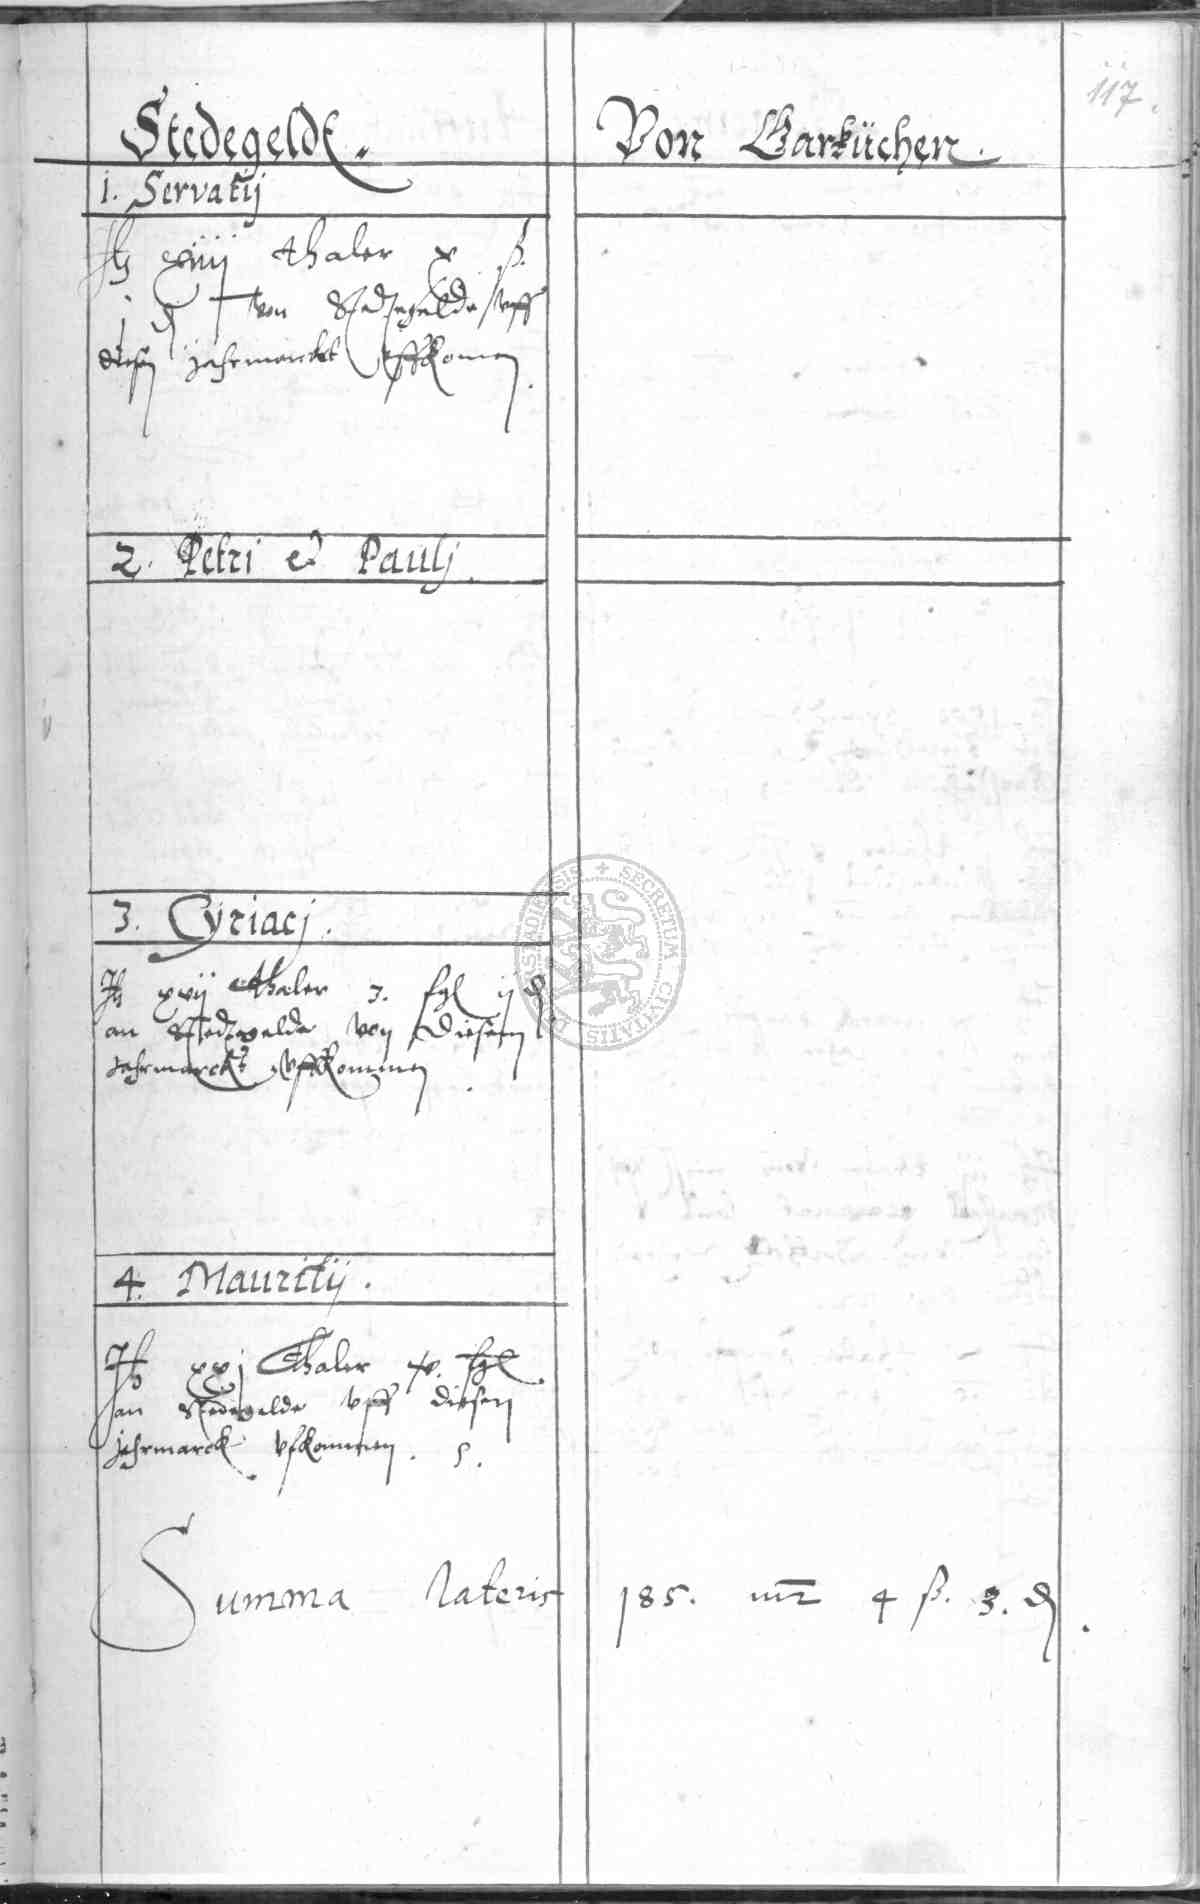 117.
Stedegeldt.
Von Garküchen.
1. Servatij
It xviiij thaler x ß.
j ₰ von Stedegelde vff
diesen jahrmarckt vffkomen.
2. Petri et Paulj.
3. Cyriacj.
It xvij thaler 3. fgl ij ₰
an Stedegelde von diesem
Jahrmarckt vffkommen.
4. Mauritij.
It xxj Thaler fgl.
an Stedegelde vff diesen
jahrmarck vfkommen.
Summa lateris 185. mr 4 ß. 3. ₰.
SECRETUM CIVITATIS